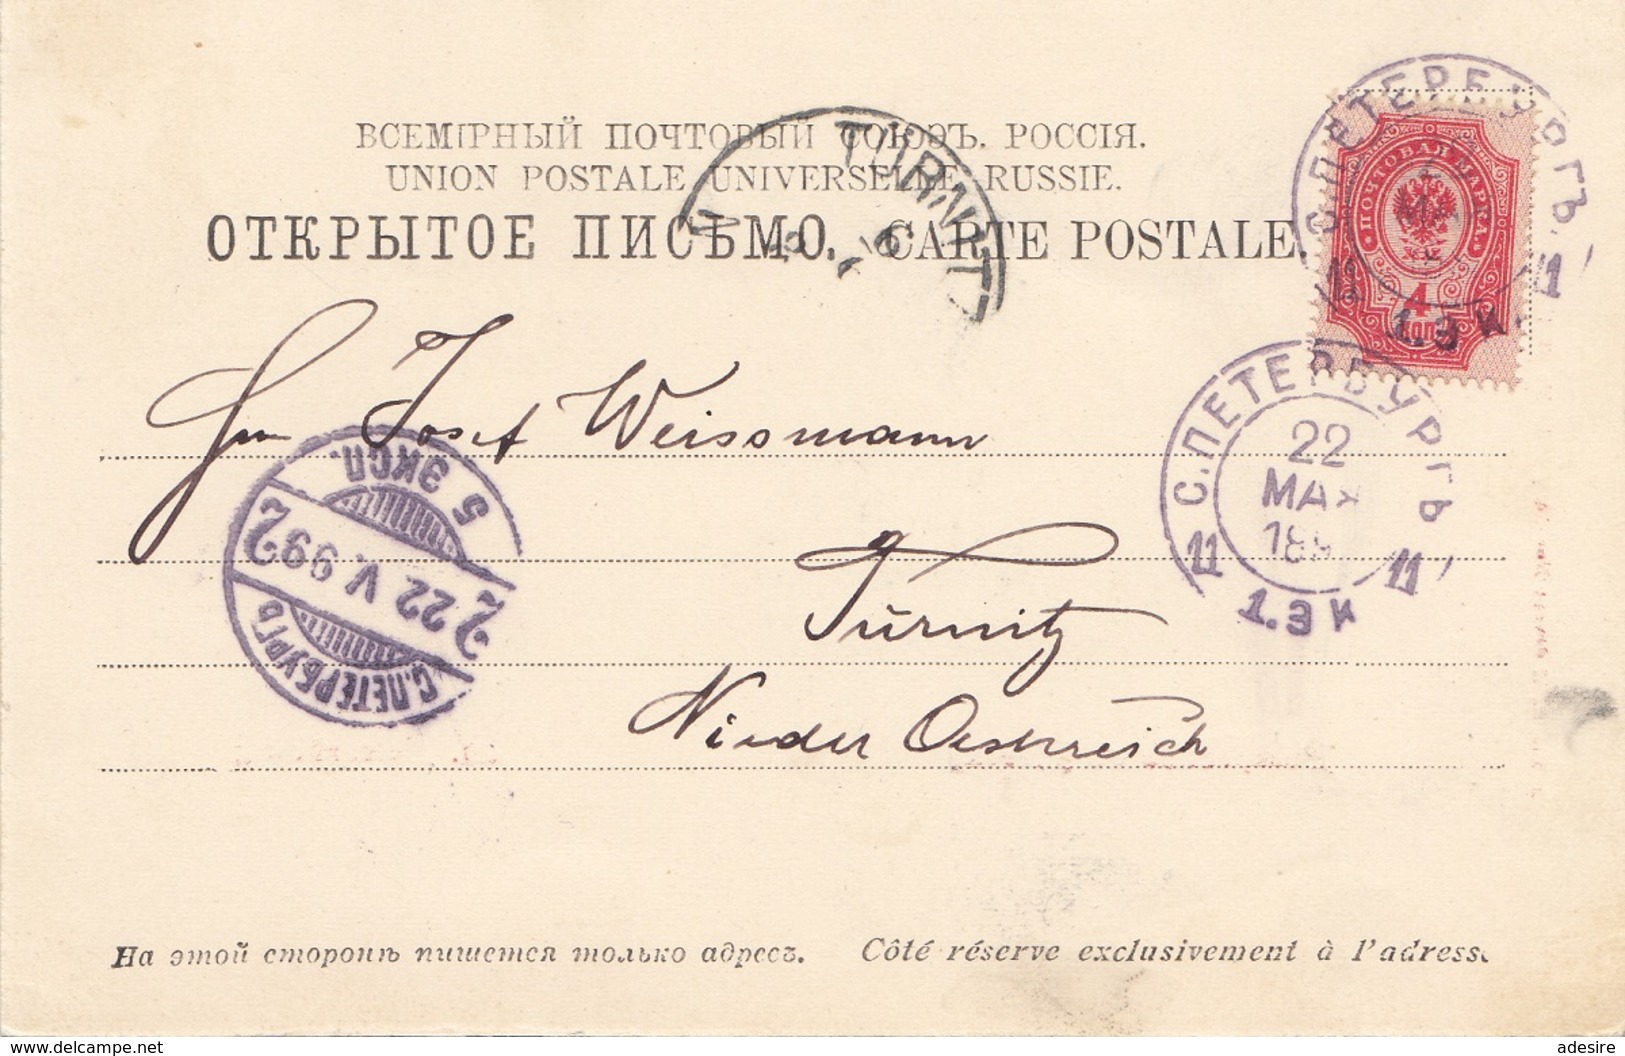 ВСЕМІРНЫЙ ПОЧТОВЫЙ СОЮЗЪ. РОССІЯ.
UNION POSTALE UNIVERSELLE RUSSIE.
ОТКРЫТОЕ ПИСЬМО. CARTE POSTALE.
TÜRNITZ
С.ПЕТЕРБУРГЪ. 11
1.ЭК
ПОЧТОВАЯ МАРКА
4
КОП
Josef Weissmann
С.ПЕТЕРБУРГЪ
22
МАЯ
11 11
1.ЭК
5 ЭКСП.
2 22 V.99 2
С.ПЕТЕРБУРГЪ
Türnitz
Nieder Oesterreich
На этой сторонѣ пишется только адресъ. Côté réservé exclusivement à l'adresse.
www.delcampe.net
adesire